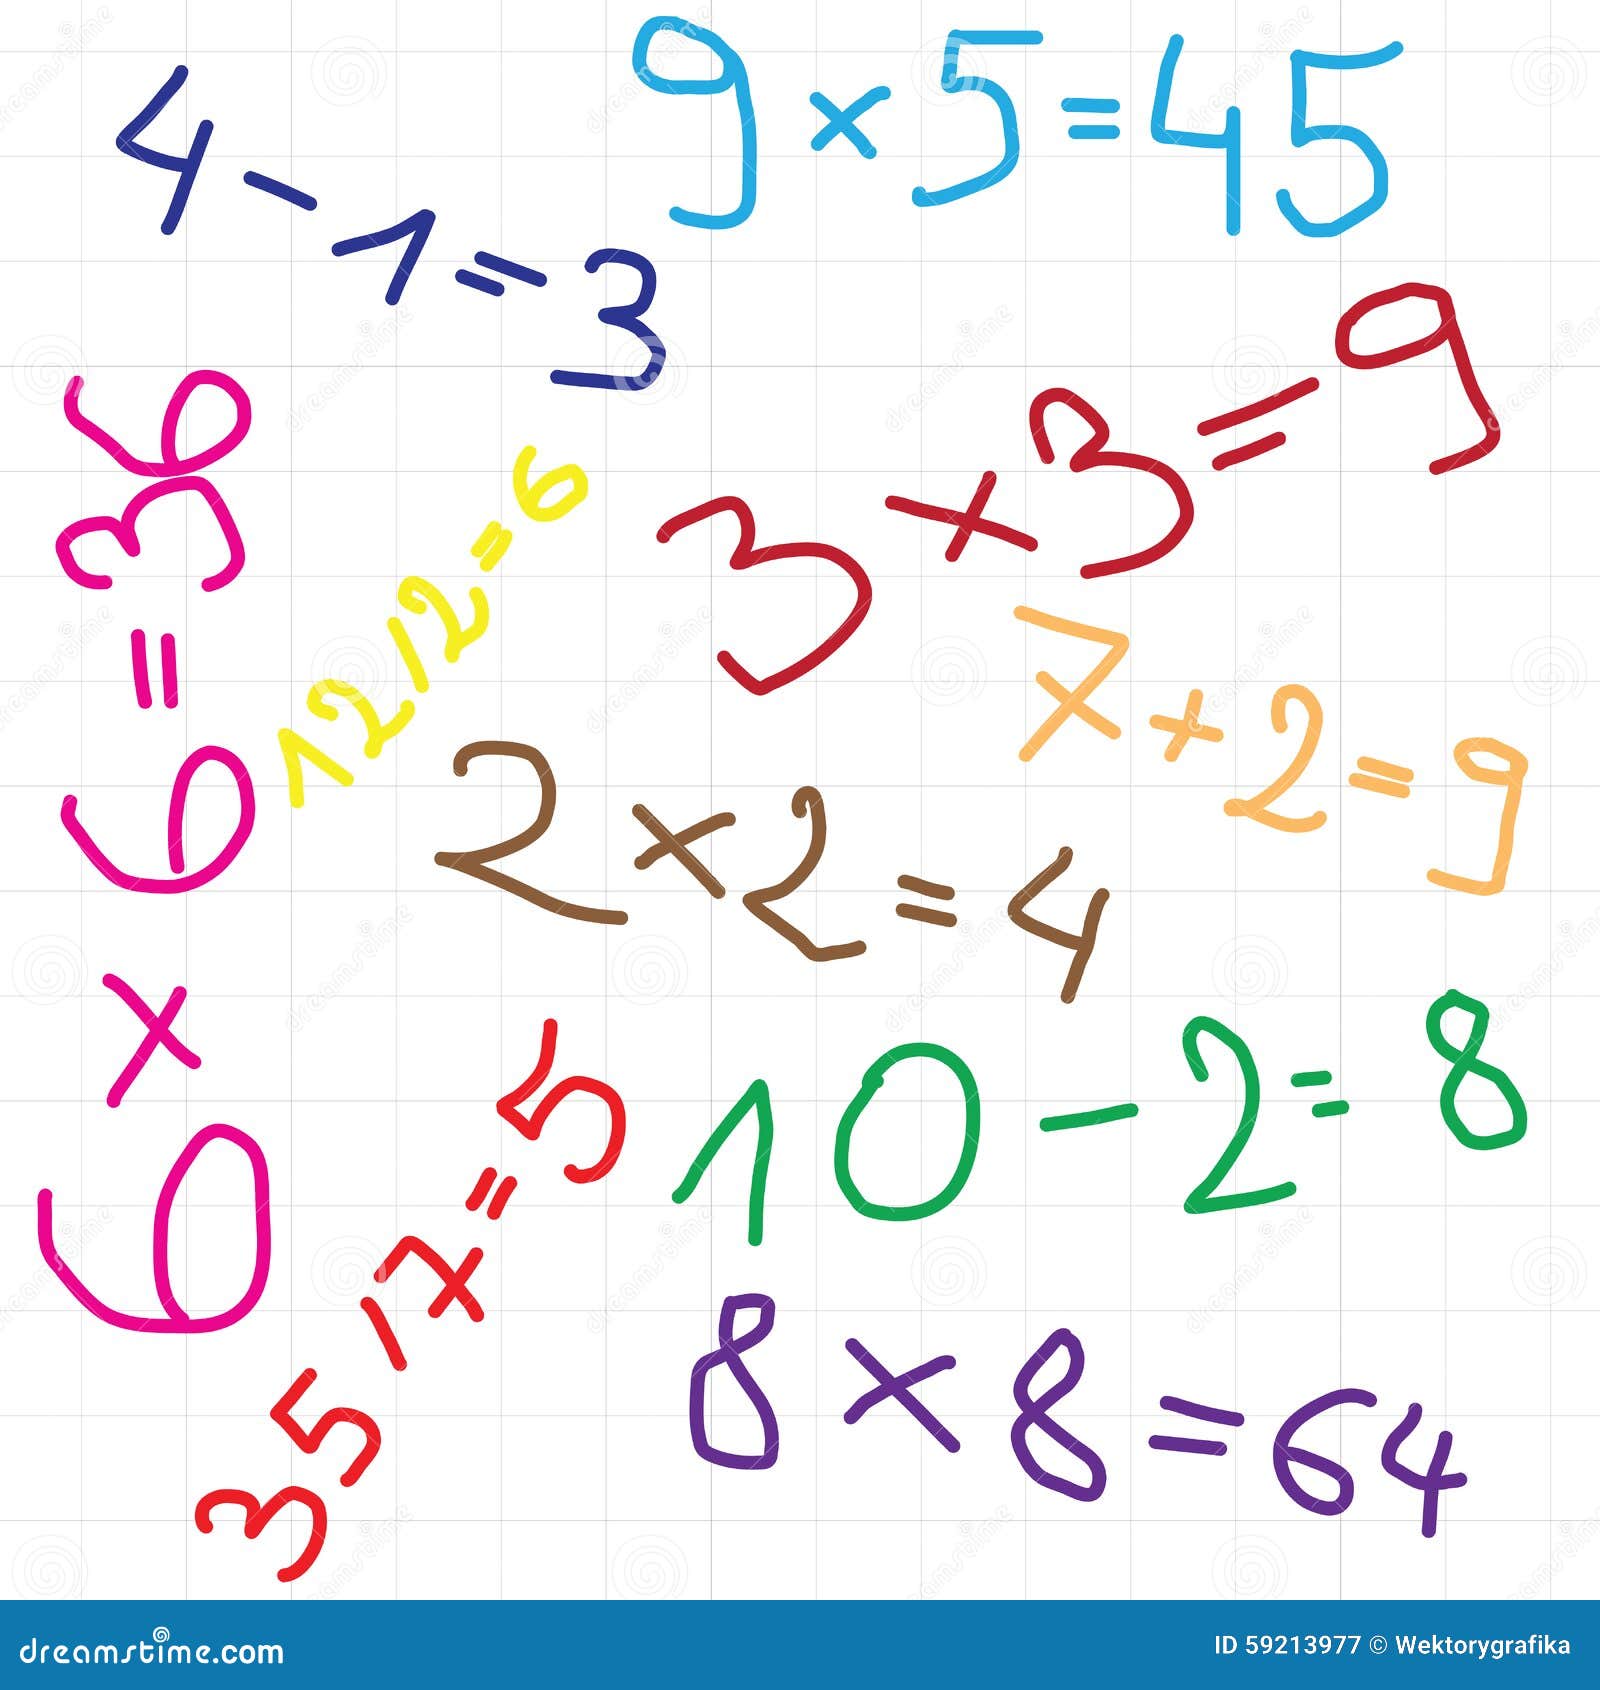 9 × 5 = 45
4 - 1 = 3
3 × 3 = 9
6 × 6 = 36
12/2 = 6
7 + 2 = 9
2 × 2 = 4
10 - 2 = 8
35/7 = 5
8 × 8 = 64
dreamstime.com
ID 59213977 © Wektorygrafika